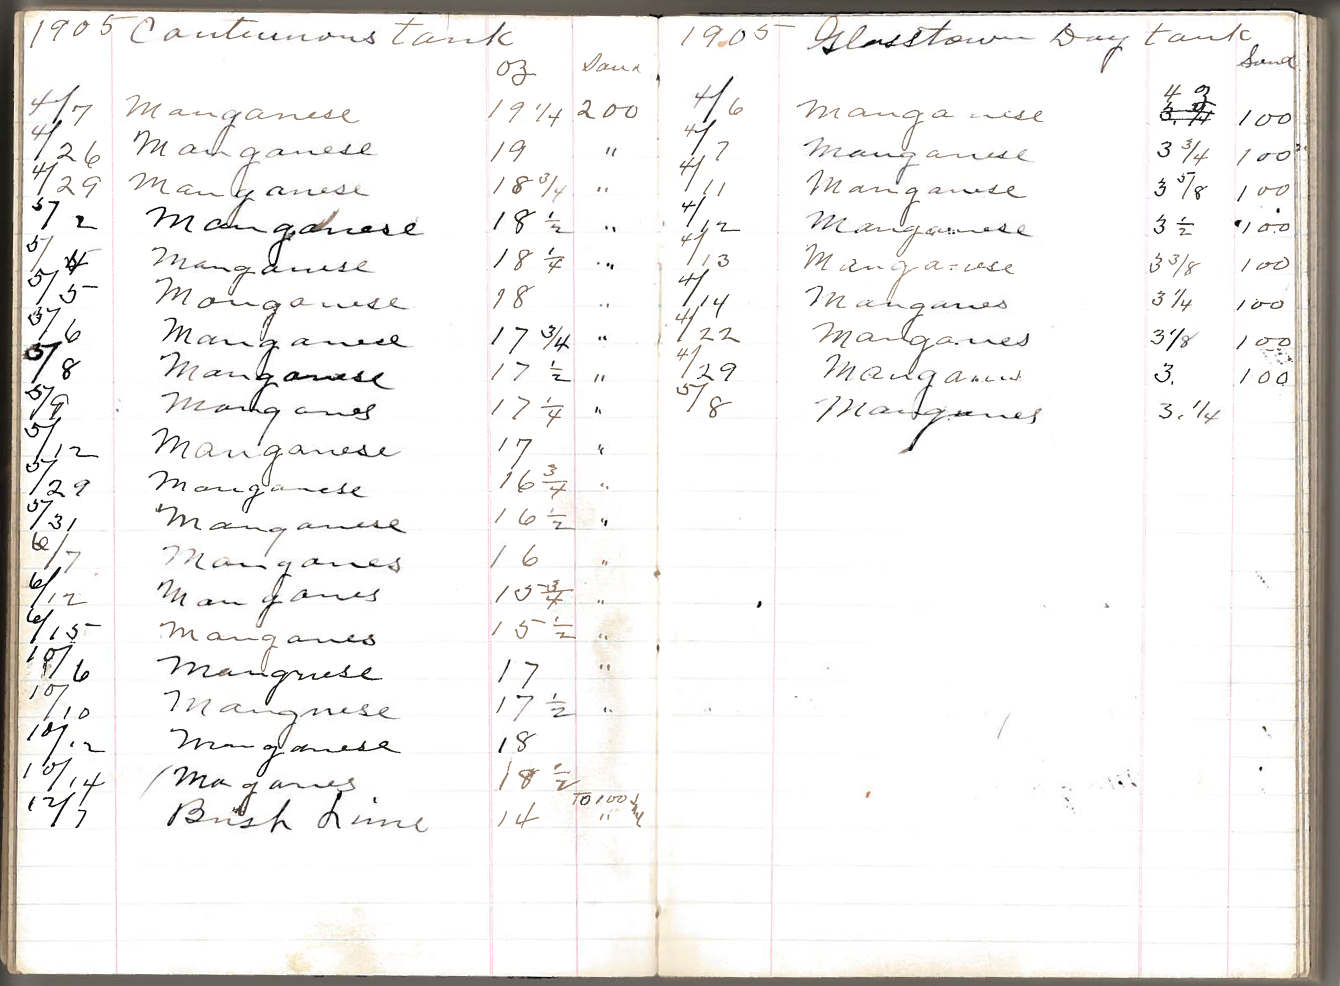 1905 Continuous tank
oz Sand
4/7 Manganese 19 1/4 200
4/26 Manganese 19 "
4/29 Manganese 18 3/4 "
5/2 Manganese 18 1/2 "
5/4 Manganese 18 1/4 "
5/5 Manganese 18 "
5/6 Manganese 17 3/4 "
5/8 Manganese 17 1/2 "
5/9 Manganes 17 1/4 "
5/12 Manganese 17 "
5/29 Manganese 16 3/4 "
5/31 Manganese 16 1/2 "
6/7 Manganes 16 "
6/12 Manganes 15 3/4 "
6/15 Manganes 15 1/2 "
10/6 Mangnese 17 "
10/10 Mangnese 17 1/2 "
10/12 Manganese 18
10/14 Maganes 18 1/2
To 100
12/7 Bush Lime 14 "
1905 Glasstown Day tank
Sand
4/6 Manganese 4 100
4/7 Manganese 3 3/4 100
4/11 Manganese 3 5/8 100
4/12 Manganese 3 1/2 100
4/13 Manganese 3 3/8 100
4/14 Manganes 3 1/4 100
4/22 Manganes 3 1/8 100
4/29 Manganes 3. 100
5/8 Manganes 3. 1/4